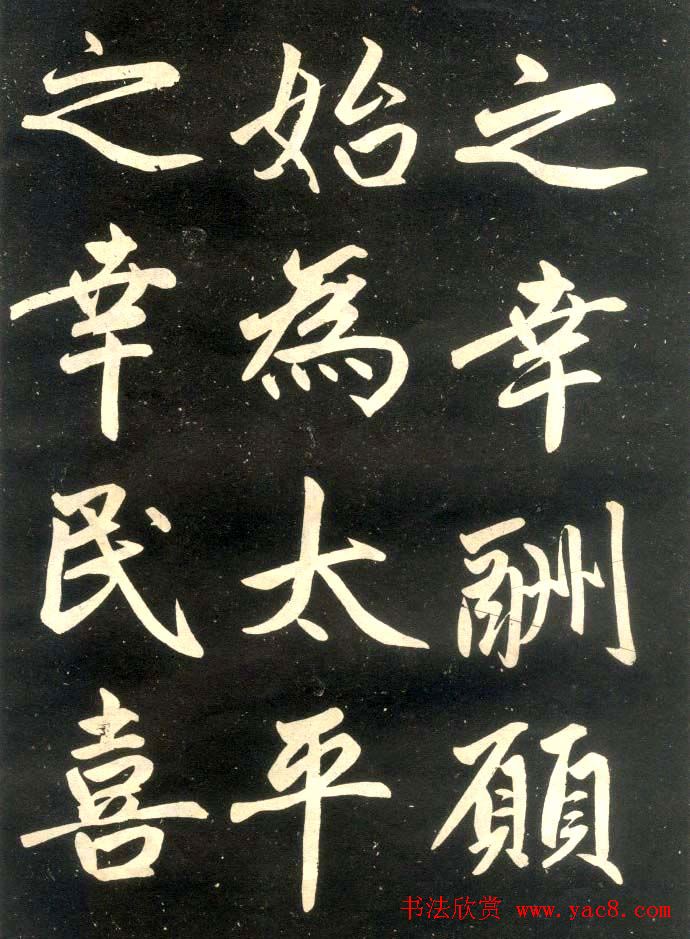 之幸酬願
始為太平
之幸民喜
书法欣赏 www.yac8.com